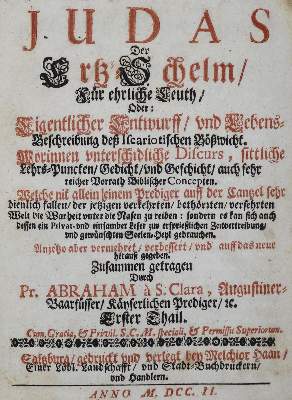 JUDAS
Der
Ertz-Schelm/
Für ehrliche Leuth/
Oder:
Eigentlicher Entwurff/ und Lebens-
Beschreibung deß Iscariotischen Bößwicht.
Worinnen unterschidliche Discurs, sittliche
Lehrs-Puncten/ Gedicht/ und Geschicht/ auch sehr
reicher Vorrath Biblischer Concepten.
Welche nit allein einem Prediger auff der Cantzel sehr
dienlich fallen/ der jetzigen verkehrten/ bethörrten/ versehrten
Welt die Warheit unter die Nasen zu reiben: sondern es kan sich auch
dessen ein Privat- und einsamber Leser zur ersprießlichen Zeitvertreibung/
und gewünschten Seelen-Heyl gebrauchen.
Anjetzo aber vermehret/ verbessert/ und auff das neue
herauß gegeben.
Zusammen getragen
Durch
Pr. ABRAHAM à S. Clara, Augustiner-
Baarfüsser/ Käyserlichen Prediger/ ꝛc.
Erster Theil.
Cum Gratia, & Privil. S. C. M. speciali, & Permissu Superiorum.
Saltzburg/ gedruckt und verlegt bey Melchior Haan/
Einer Löbl. Landschafft/ und Stadt-Buchdruckern/
und Handlern.
ANNO M. DCC. II.